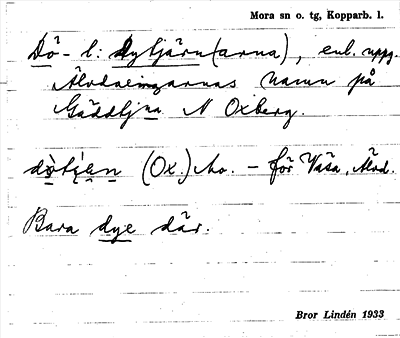 Mora sn o. tg, Kopparb. l.
Dö- l: Dytjärn(arna), enl. uppg.
Älvdalingarnas namn på
Gäddtjna N Oxberg.
(Ox.) - för Våsa, Älvd.
Bara dye där.
Bror Lindén 1933